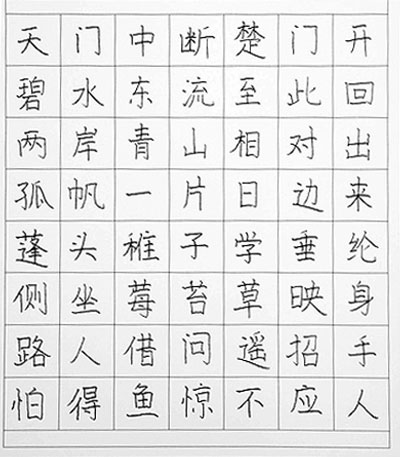 天门中断楚门开
碧水东流至此回
两岸青山相对出
孤帆一片日边来
蓬头稚子学垂纶
侧坐莓苔草映身
路人借问遥招手
怕得鱼惊不应人